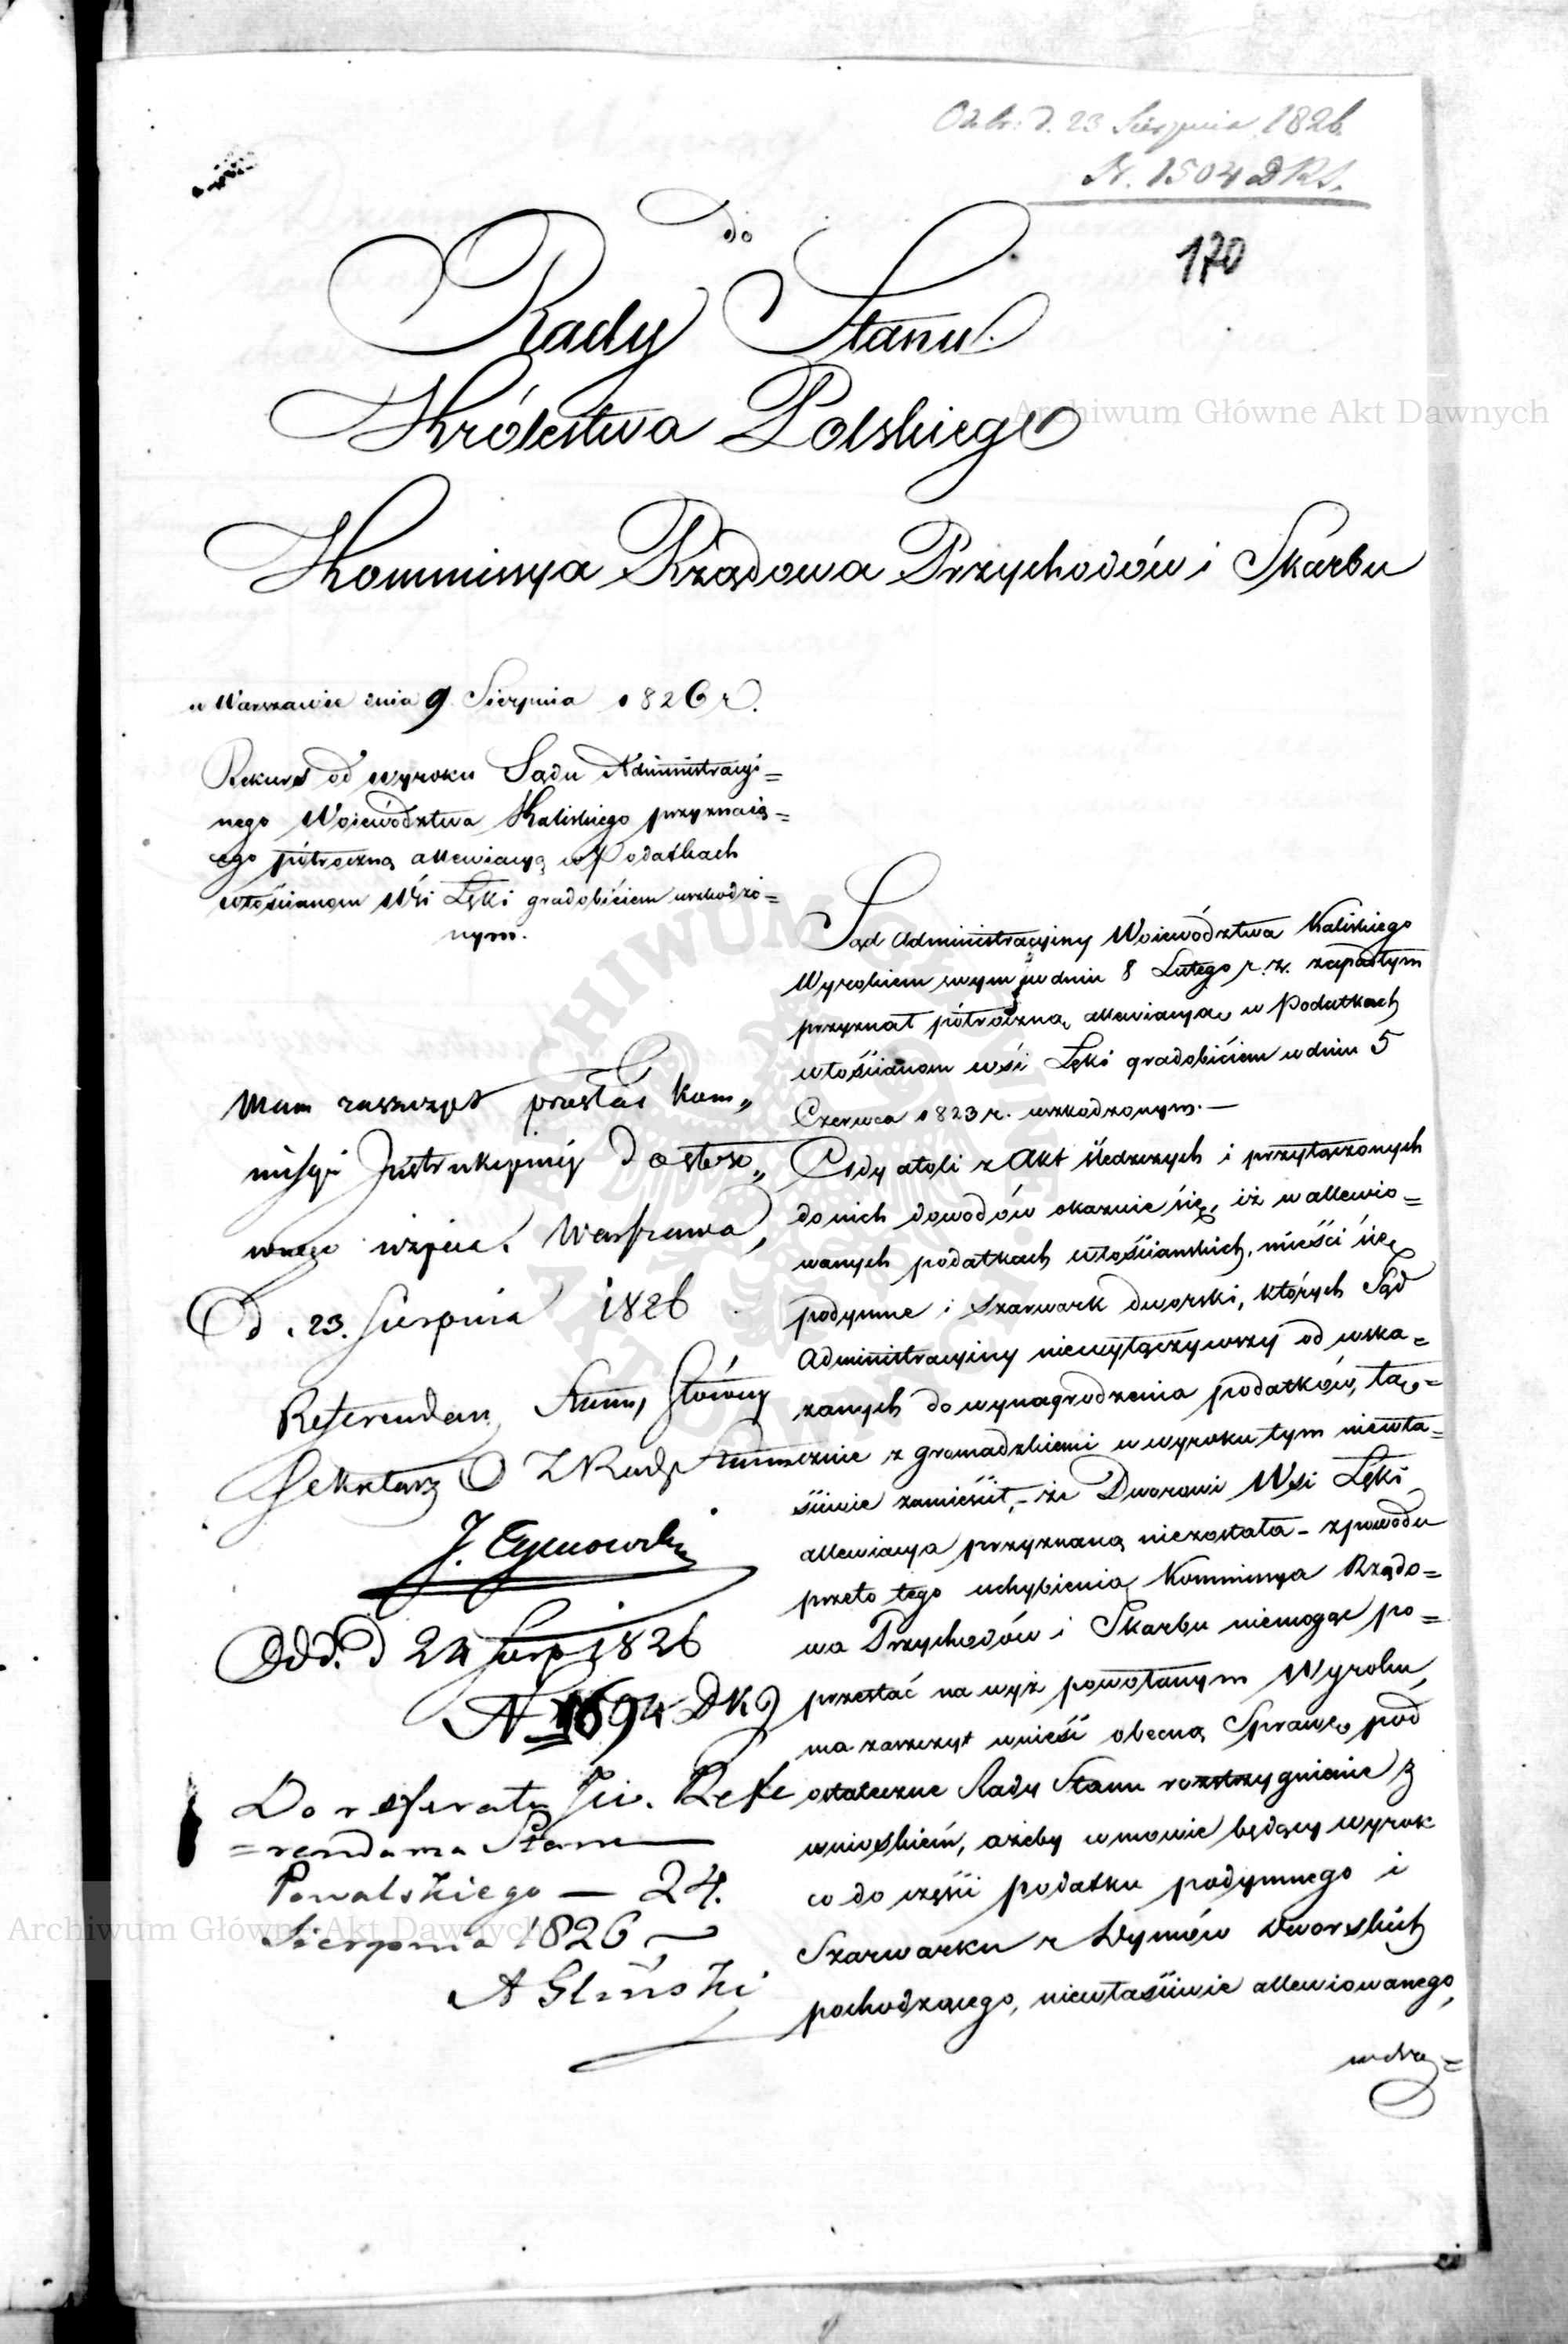 Odebr: d. 23 Sierpnia 1826.
N. 1504 DRS.
170
do
Rady Stanu
Królestwa Polskiego
Kommissya Rządowa Przychodów i Skarbu
w Warszawie dnia 9 Sierpnia 1826 r.
Rekurs od wyroku Sądu Administracyi=
nego Województwa Kaliskiego przyznaią=
cego półroczną allewiacyą w Podatkach
włościanom Wsi Łęki gradobiciem uszkodzo=
nym.
Sąd Administracyiny Woiewództwa Kaliskiego
Wyrokiem swym w dniu 8 Lutego r. z. zapadłym
przyznał półroczną allewiacyą w Podatkach
włościanom wsi Łęki gradobiciem w dniu 5
Czerwca 1823 r. uszkodzonym. —
Gdy atoli z Akt śledczych i przyłączonych
do nich dowodów okazuie się, iż w allewio=
wanych podatkach włościańskich, mieści się
podymne i szarwark dworski, których Sąd
Administracyiny niewyłączywszy od wska=
zanych do wynagrodzenia podatków, łą=
cznie z gromadzkiemi w wyroku tym niewła=
ściwie zamieścił, – że Dworowi Wsi Łęki
allewiacya przyznaną niezostała – z powodu
przeto tego uchybienia Kommissya Rządo=
wa Przychodów i Skarbu niemogąc po=
przestać na wyż powołanym Wyroku,
ma zaszczyt wnieść obecną Sprawę pod
ostateczne Rady Stanu rozstrzygnienie z
wnioskiem, ażeby w mowie będący wyrok
co do części podatku podymnego i
Szarwarku z Dymów Dworskich
pochodzącego, niewłaściwie allewiowanego,
Mam zaszczyt przesłać Kom„
misyi Instrukcyiney do stoso„
wnego użycia. Warszawa,
d. 23. Sierpnia 1826
Referendarz Stanu, Główny
Sekretarz Rady Stanu
J. Tymowski
Odd. d 24 Sierp 1826
N 1694 DKJ
Do referatu JW. Refe
=rendarza Stanu
Powalskiego — 24.
Sierpnia 1826
A Gliński
Archiwum Główne Akt Dawnych
Archiwum Główne Akt Dawnych